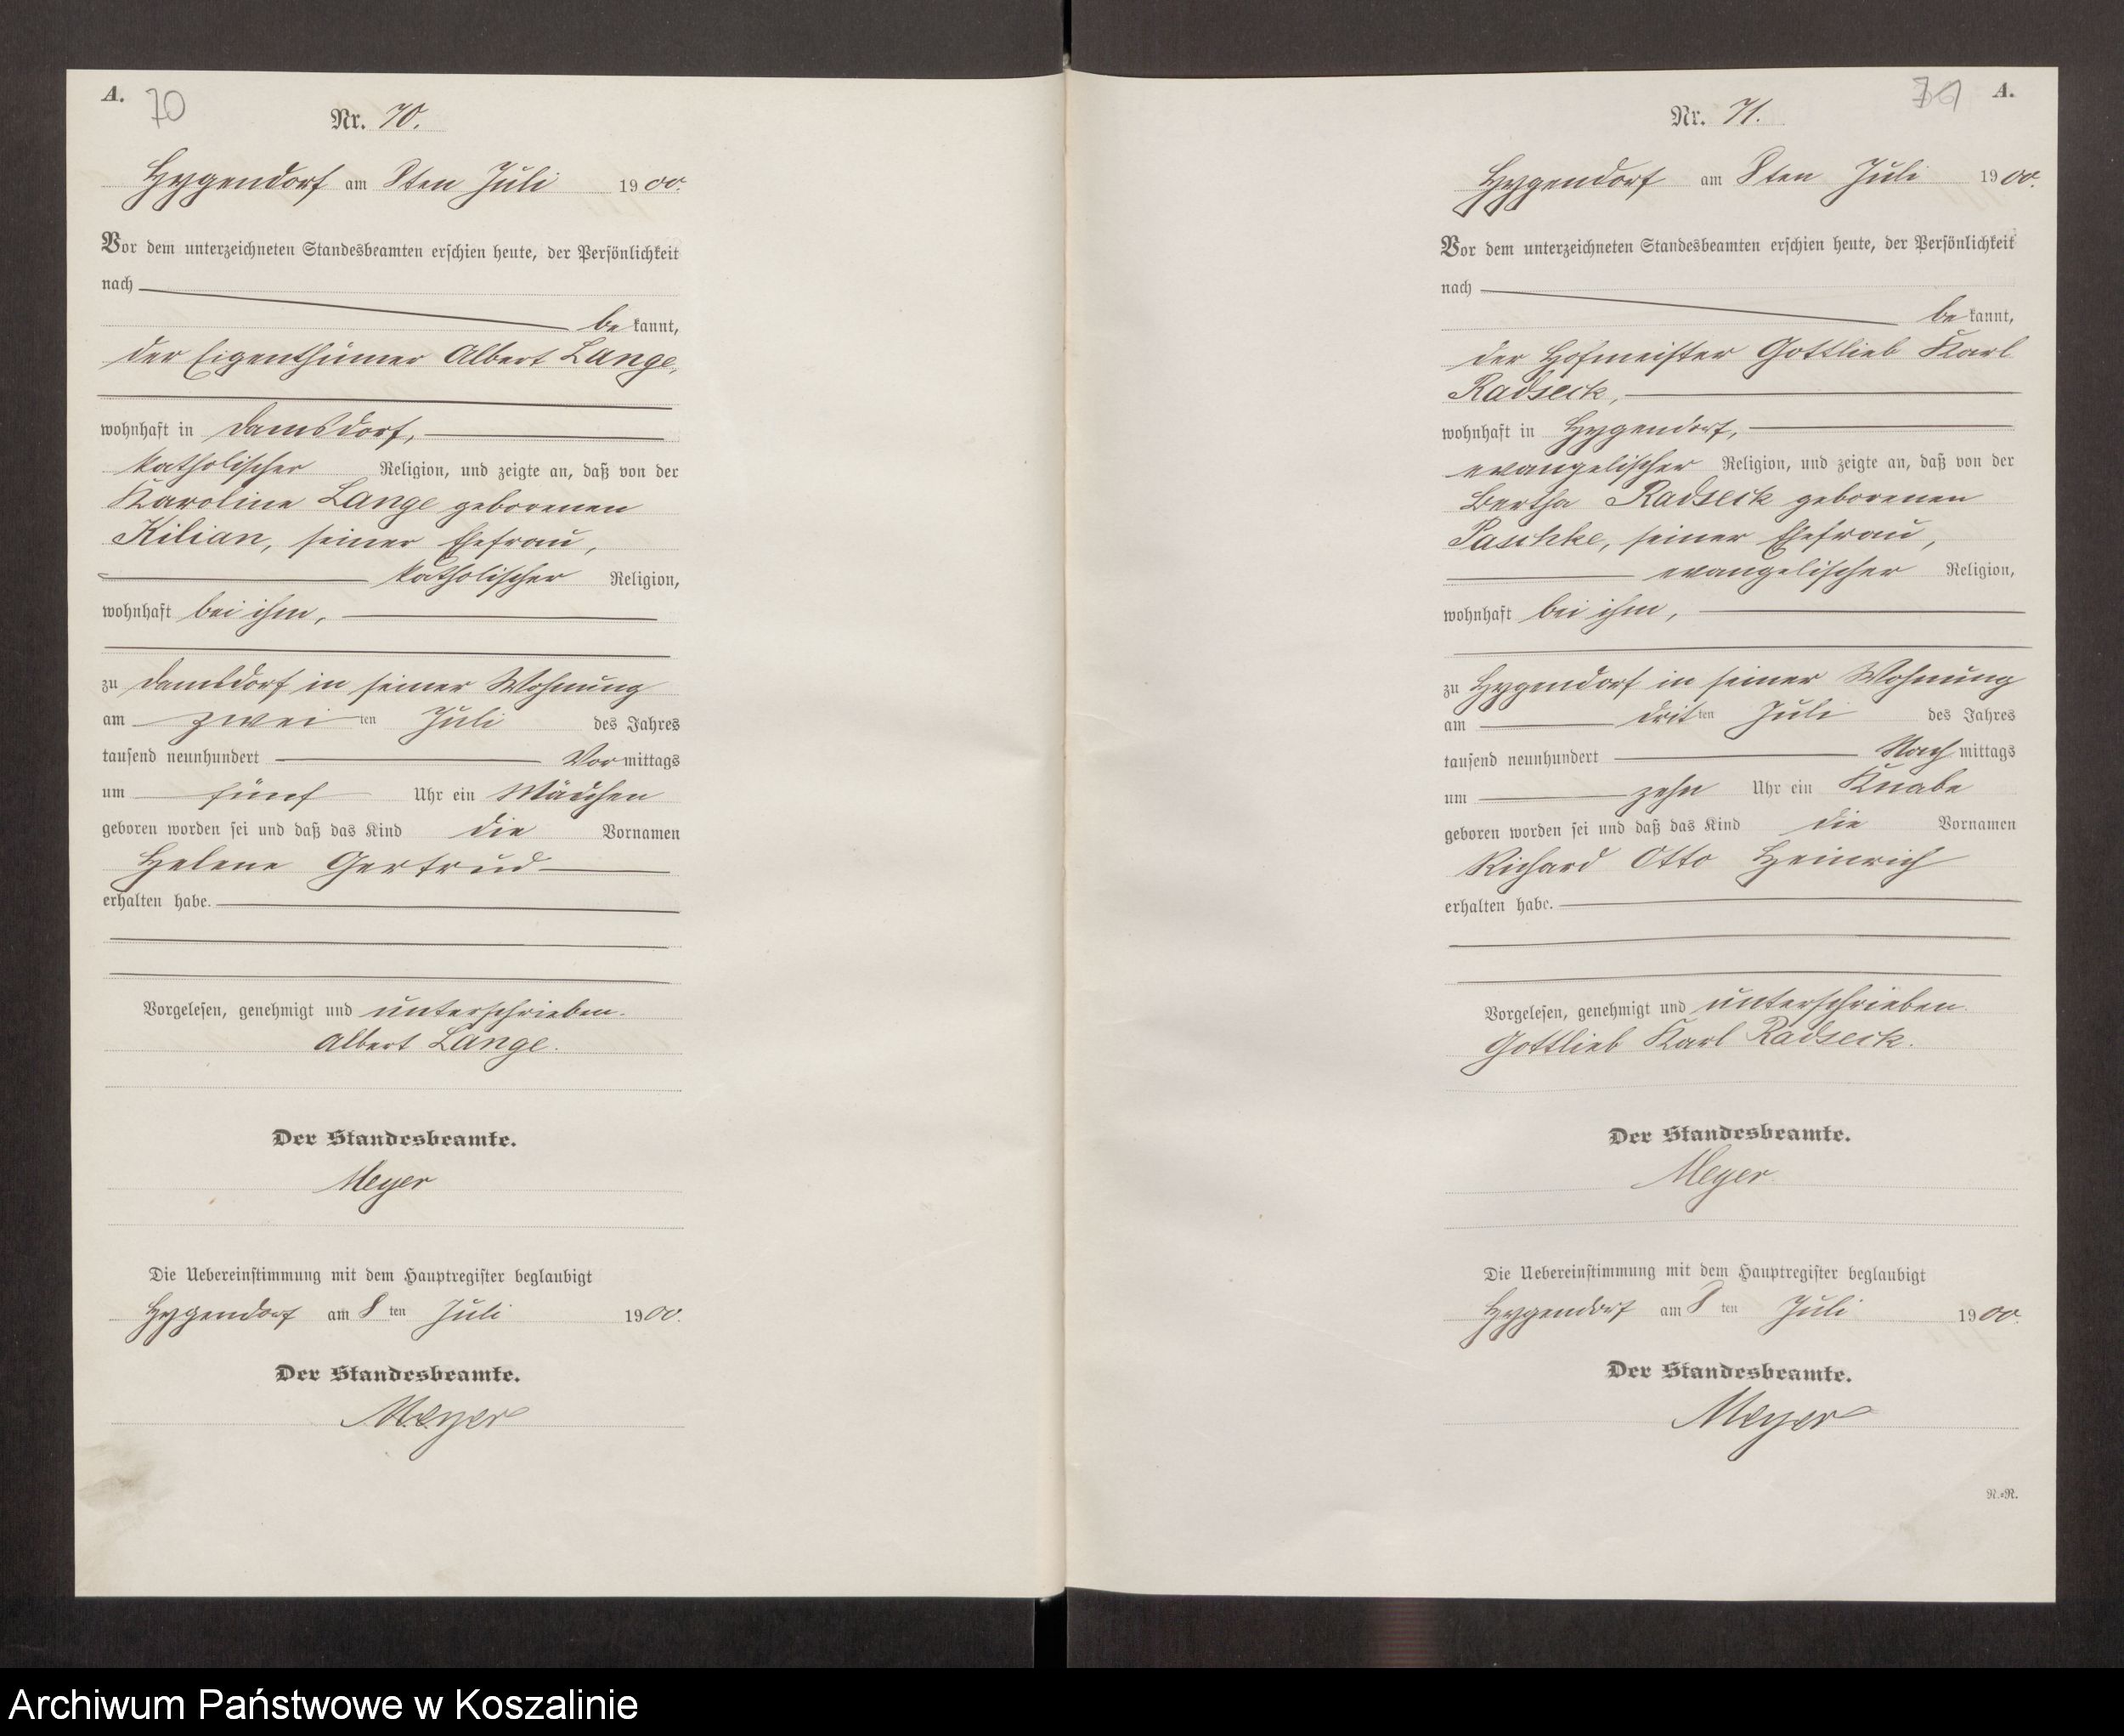 A. 70
Nr. 70.
Hygendorf am 8ten Juli 1900.
Vor dem unterzeichneten Standesbeamten erschien heute, der Persönlichkeit
nach
bekannt,
der Eigenthümer Albert Lange,
wohnhaft in Damsdorf,
katholischer Religion, und zeigte an, daß von der
Karoline Lange geborenen
Kilian, seiner Ehefrau,
katholischer Religion,
wohnhaft bei ihm,
zu Damsdorf in seiner Wohnung
am zweiten Juli des Jahres
tausend neunhundert Vormittags
um fünf Uhr ein Mädchen
geboren worden sei und daß das Kind die Vornamen
Helene Gertrud
erhalten habe.
Vorgelesen, genehmigt und unterschrieben.
Albert Lange.
Der Standesbeamte.
Meyer
Die Uebereinstimmung mit dem Hauptregister beglaubigt
Hygendorf am 8ten Juli 1900.
Der Standesbeamte.
Meyer
71 A.
Nr. 71.
Hygendorf am 8ten Juli 1900.
Vor dem unterzeichneten Standesbeamten erschien heute, der Persönlichkeit
nach
bekannt,
der Hofmeister Gottlieb Karl
Radseck,
wohnhaft in Hygendorf,
evangelischer Religion, und zeigte an, daß von der
Bertha Radseck geborenen
Paschke, seiner Ehefrau,
evangelischer Religion,
wohnhaft bei ihm,
zu Hygendorf in seiner Wohnung
am dritten Juli des Jahres
tausend neunhundert Nachmittags
um zehn Uhr ein Knabe
geboren worden sei und daß das Kind die Vornamen
Richard Otto Heinrich
erhalten habe.
Vorgelesen, genehmigt und unterschrieben.
Gottlieb Karl Radseck.
Der Standesbeamte.
Meyer
Die Uebereinstimmung mit dem Hauptregister beglaubigt
Hygendorf am 8ten Juli 1900.
Der Standesbeamte.
Meyer
R.=R.
Archiwum Państwowe w Koszalinie